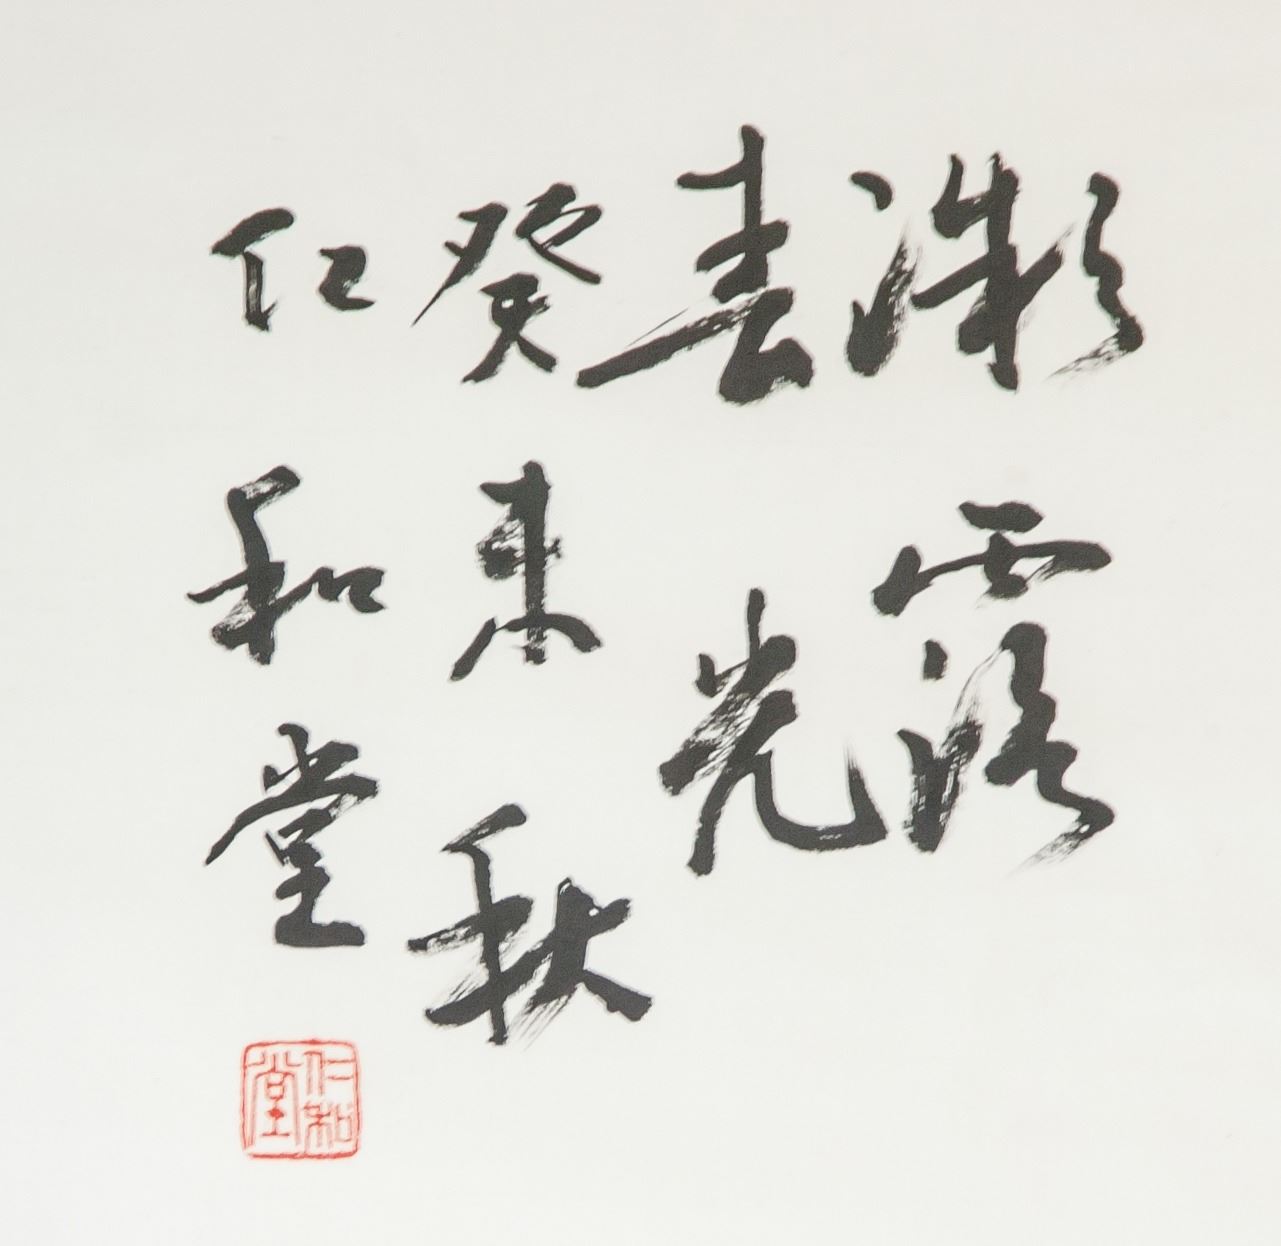 漱露
春光
癸未秋
仁和堂
仁和堂